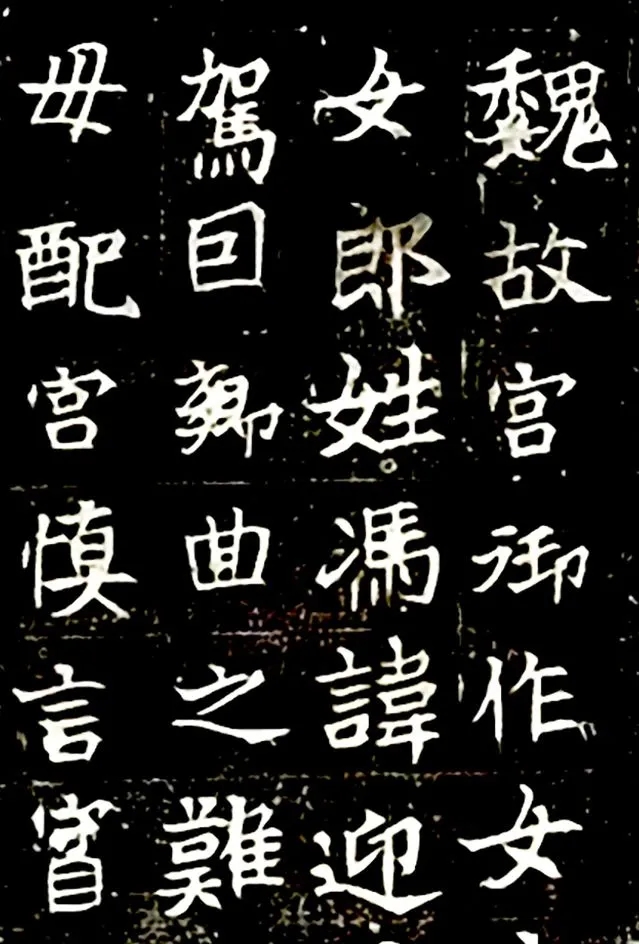 魏故宮御作女
女郎姓馮諱迎
駕回卿曲之難
毋配宮慎言